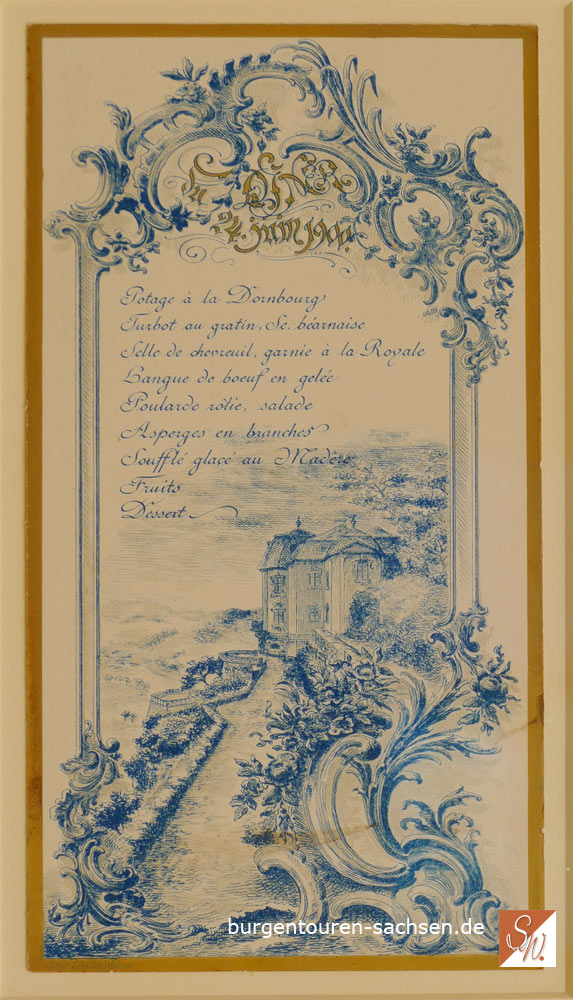 Du DÎNER
24. juin 1900.
Potage à la Dornbourg
Turbot au gratin, Sc. béarnaise
Selle de chevreuil, garnie à la Royale
Langue de boeuf en gelée
Poularde rôtie, salade
Asperges en branches
Soufflé glacé au Madère
Fruits
Dessert
burgentouren-sachsen.de
SW.